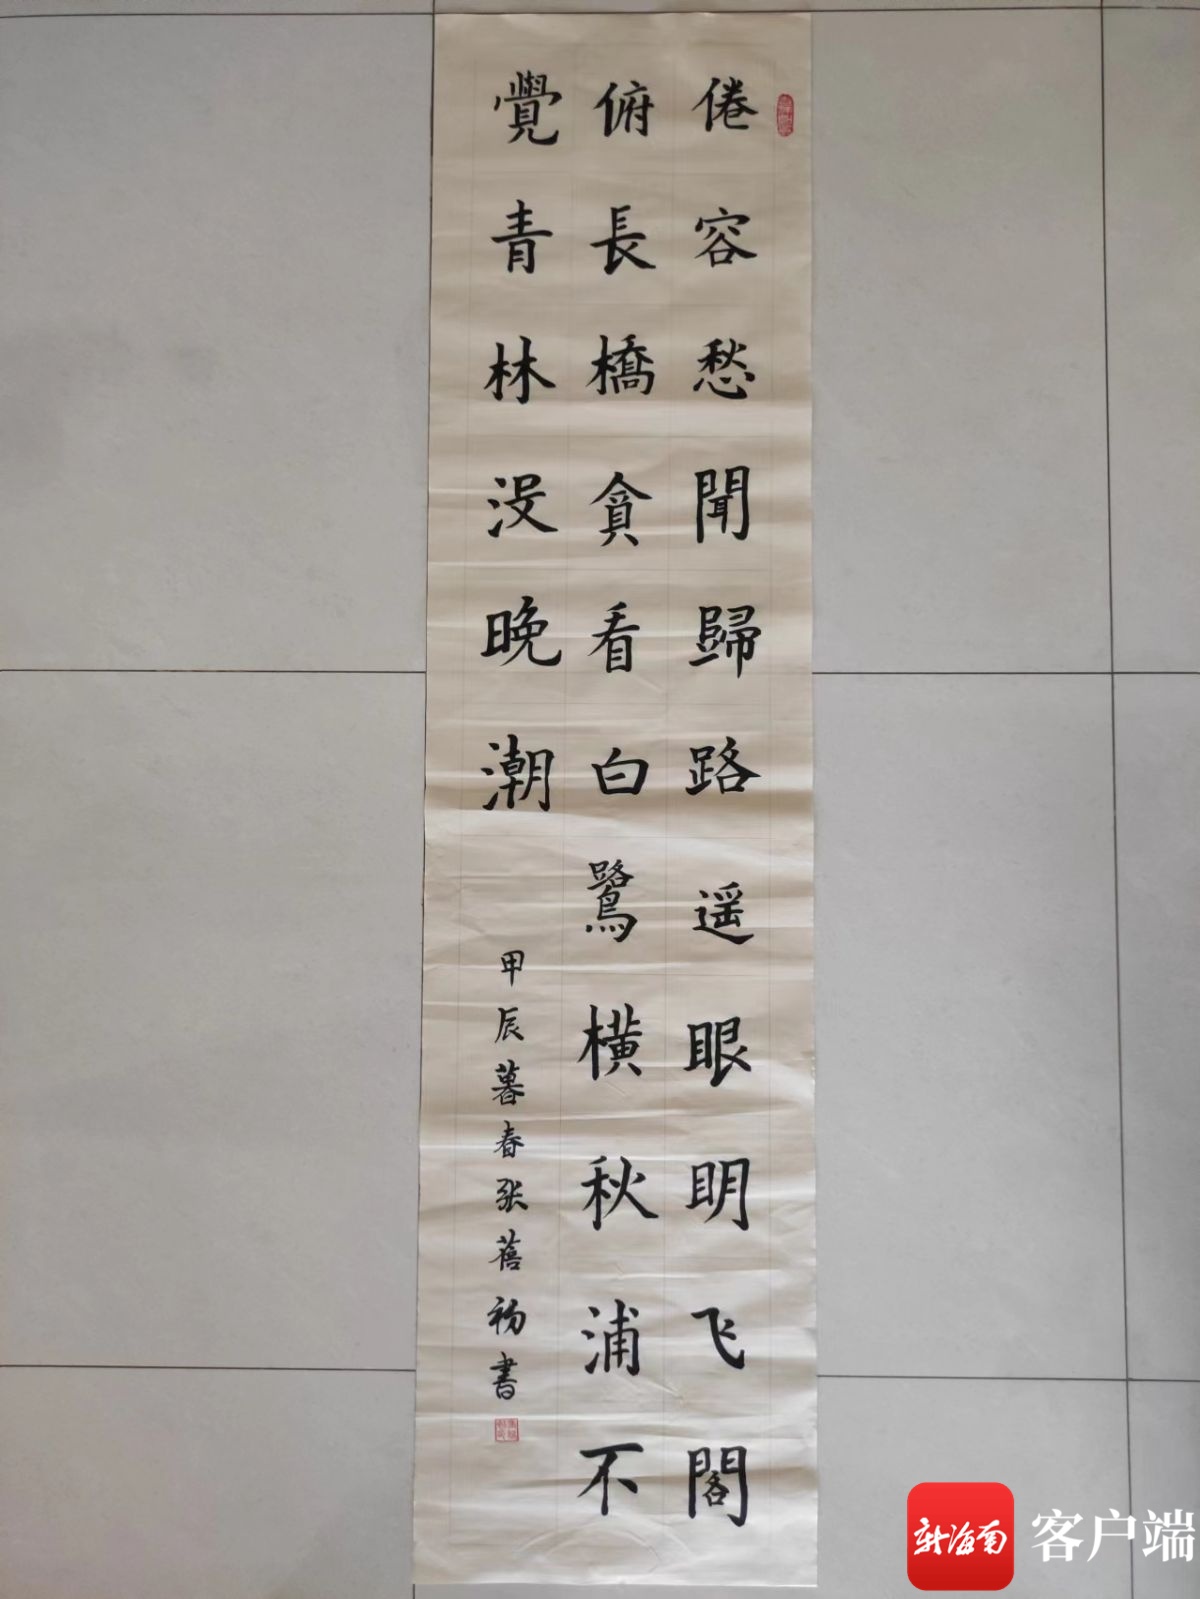 倦容愁聞歸路遥眼明飞閣
俯長橋貪看白鷺橫秋浦不
覺青林没晚潮
甲辰暮春张蓓初書
新海南
客户端